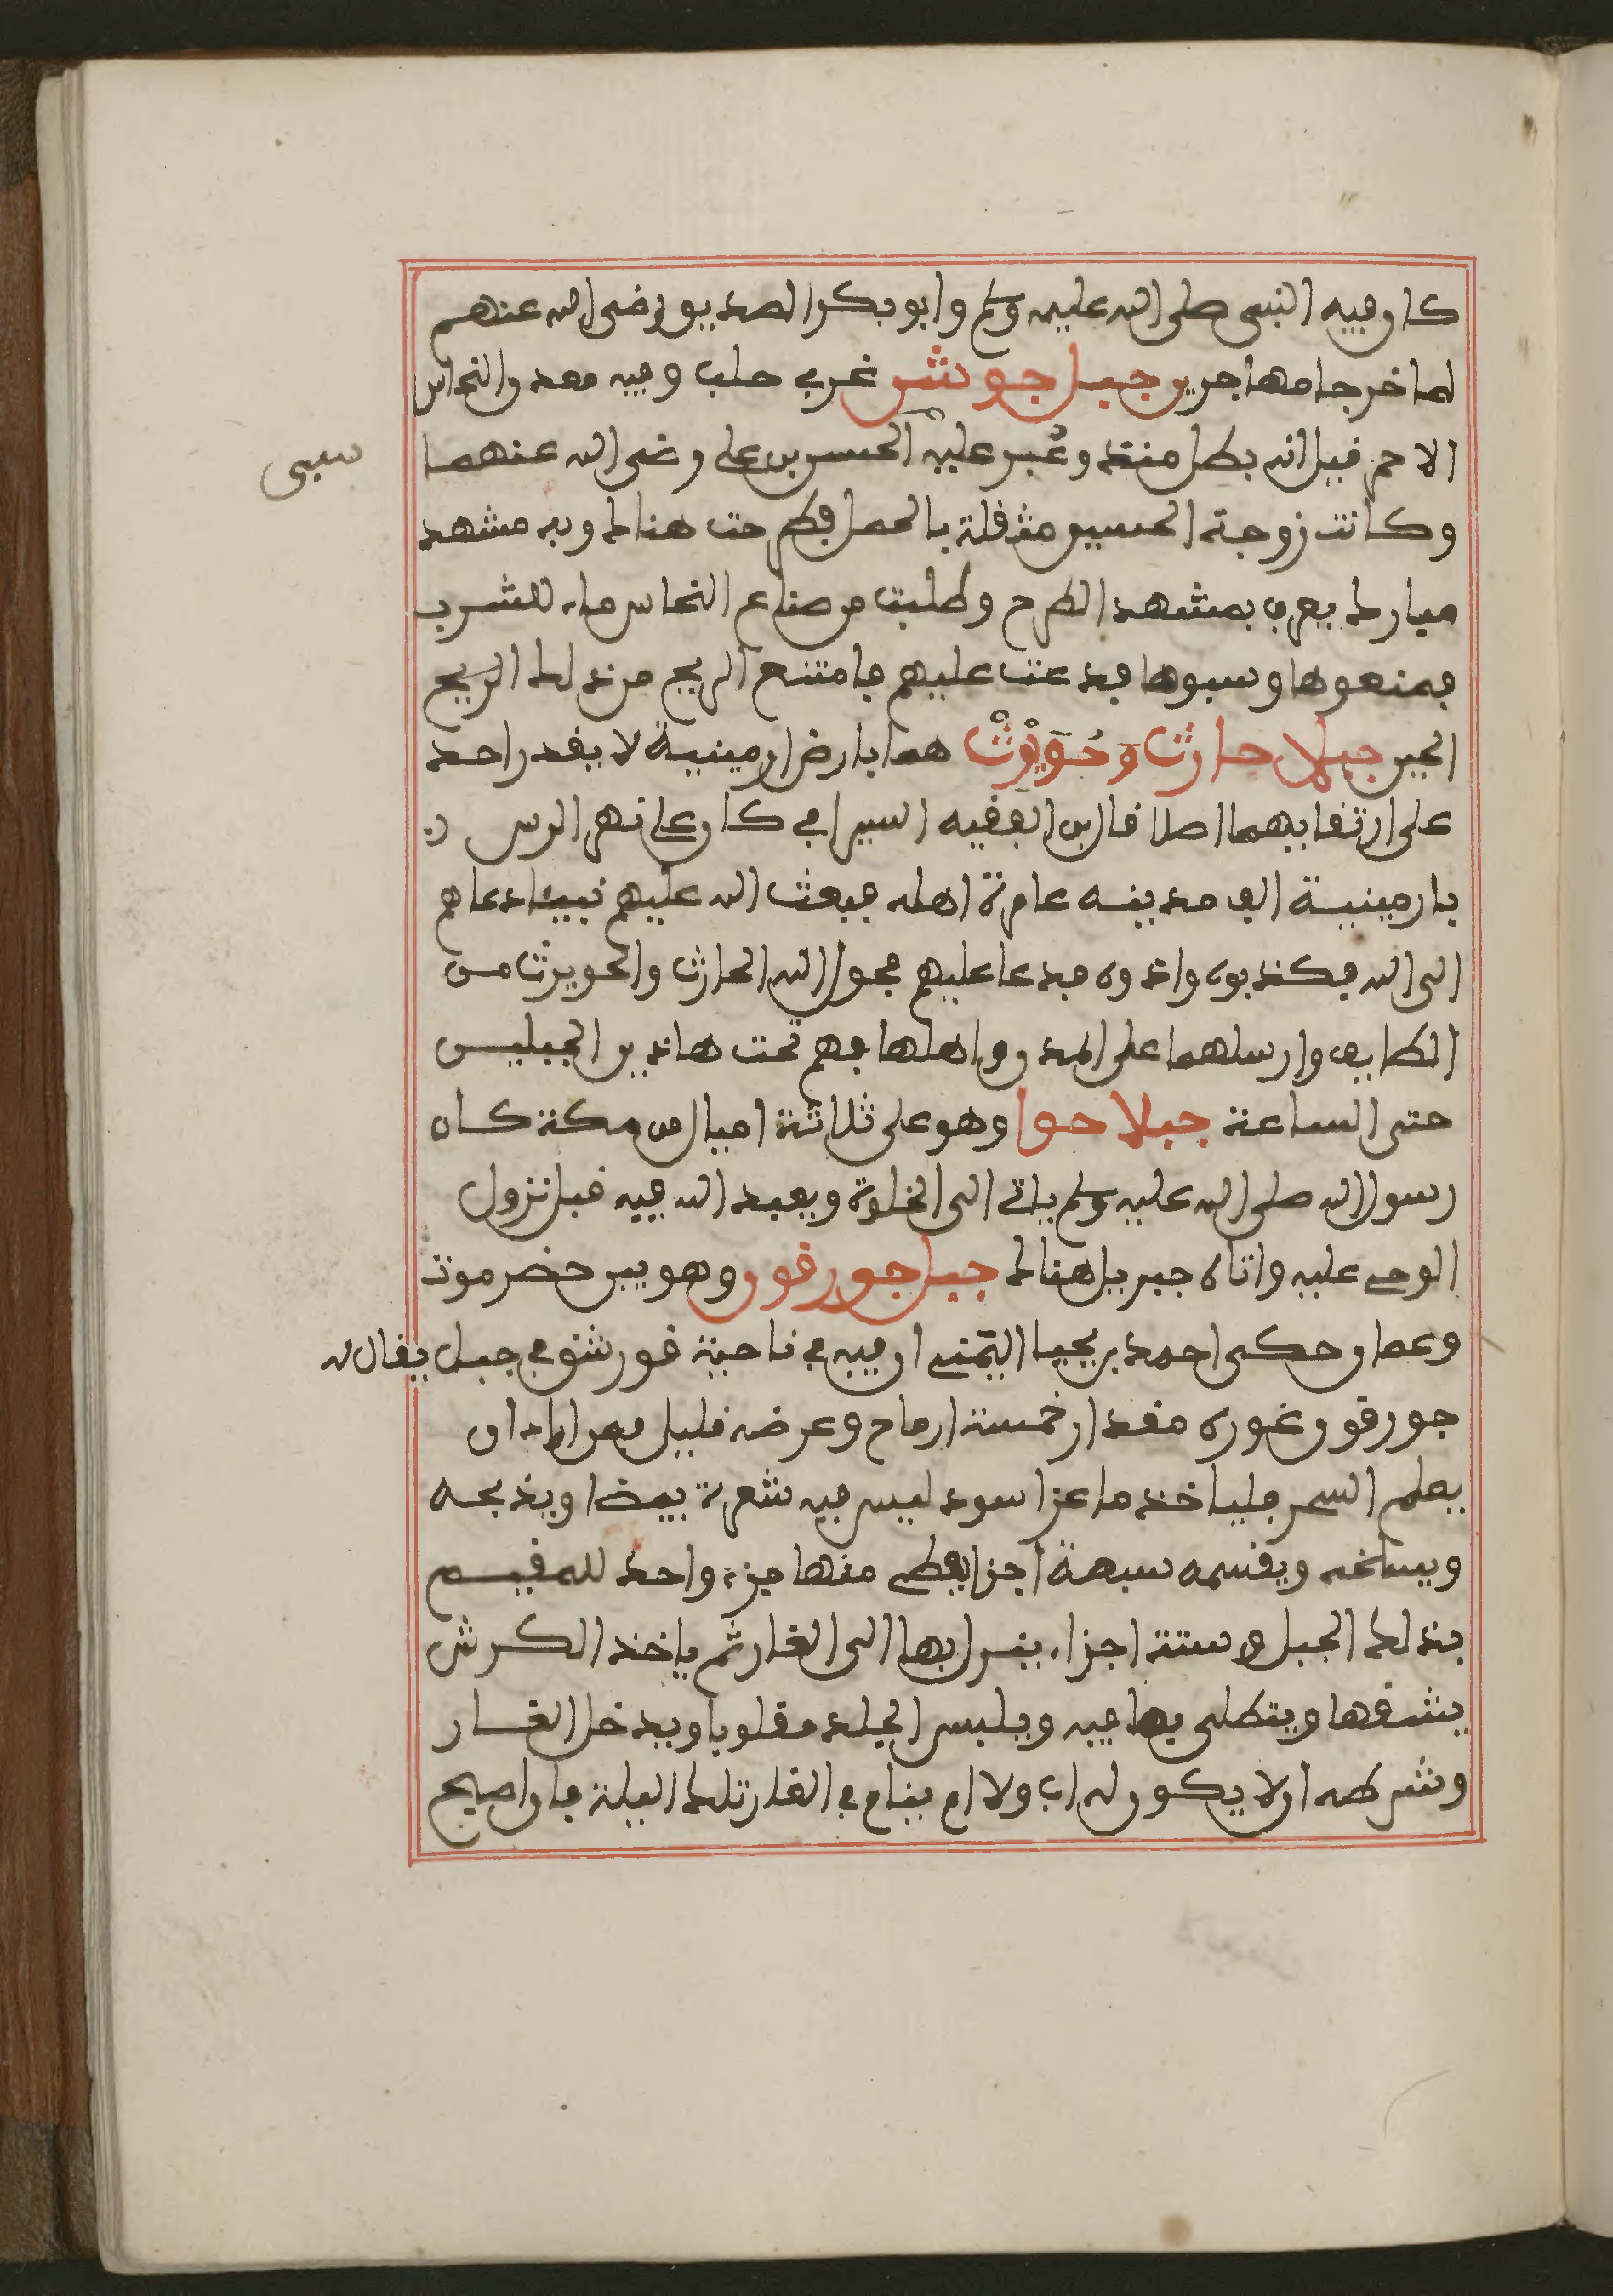 كان فيه النبي صلى الله عليه وسلم وابو بكر الصديق رضي الله عنهم
لما خرجا مهاجرين جبل جوشن غربي حلب وفيه معدن النحاس
الاحمر قيل انه بطل منذ عُبر عليه الحسن بن علي رضي الله عنهما
سبي
وكانت زوجة الحسين مثقلة بالحمل فطرحت هناك وبه مشهد
مبارك يعرف بمشهد الطرح وطلبت من صناع النحاس ماء للشرب
فمنعوها وسبوها فدعت عليهم فامتنع الربح من ذلك الريح
الحين جبلا حارث وَحُوَيْرْث هما بارض ارمينية لا يقدر احد
على ارتقايهما اصلا قال ابن الفقيه السيرافي كان على نهر الرس
بارمينية الف مدينة عامرة اهله فبعث الله عليهم نبيئا دعاهم
الى الله فكذبوه واذوه فدعا عليهم فحول الله الحارث والحويرث من
الطايف وارسلهما على المدن واهلها فهم تحت هاذين الجبلين
حتى الساعة جبلا حرا وهو على ثلاثة اميال من مكة كان
رسول الله صلى الله عليه وسلم ياتي الى الخلوة ويعبد الله فيه قبل نزول
الوحي عليه واتاه جبريل هناك جبل جورقور وهو بين حضرموت
وعمان وحكى احمد بن يحيا اليمني ان فيه في ناحية قور شق في جبل يقال له
جورقور غوره مقدار خمسة ارماح وعرضه قليل فمن اراد ان
يعلم السحر فلياخذ ماعز اسود ليس فيه شعرة بيضا ويذبحه
ويسلخه ويقسمه سبعة اجزا يعطي منها جزء واحد للمقيم
بذلك الجبل وستة اجزاء ينزل بها الى الغار ثم ياخذ الكرش
يشقها ويتطلى بما فيه ويلبس الجلد مقلوبا ويدخل الغار
وشرطه ان لا يكون له اب ولا ام ينام في الغار تلك اليلة فان اصبح